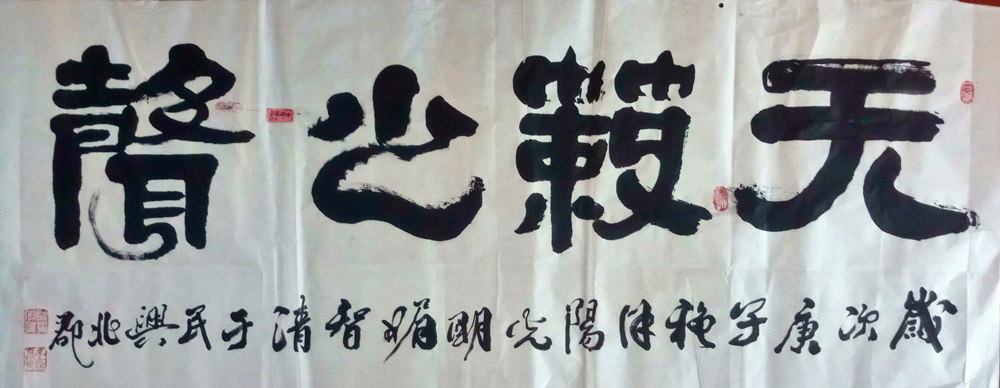 天籁之聲
歲次庚子秋律陽光明媚智清于民興北郡